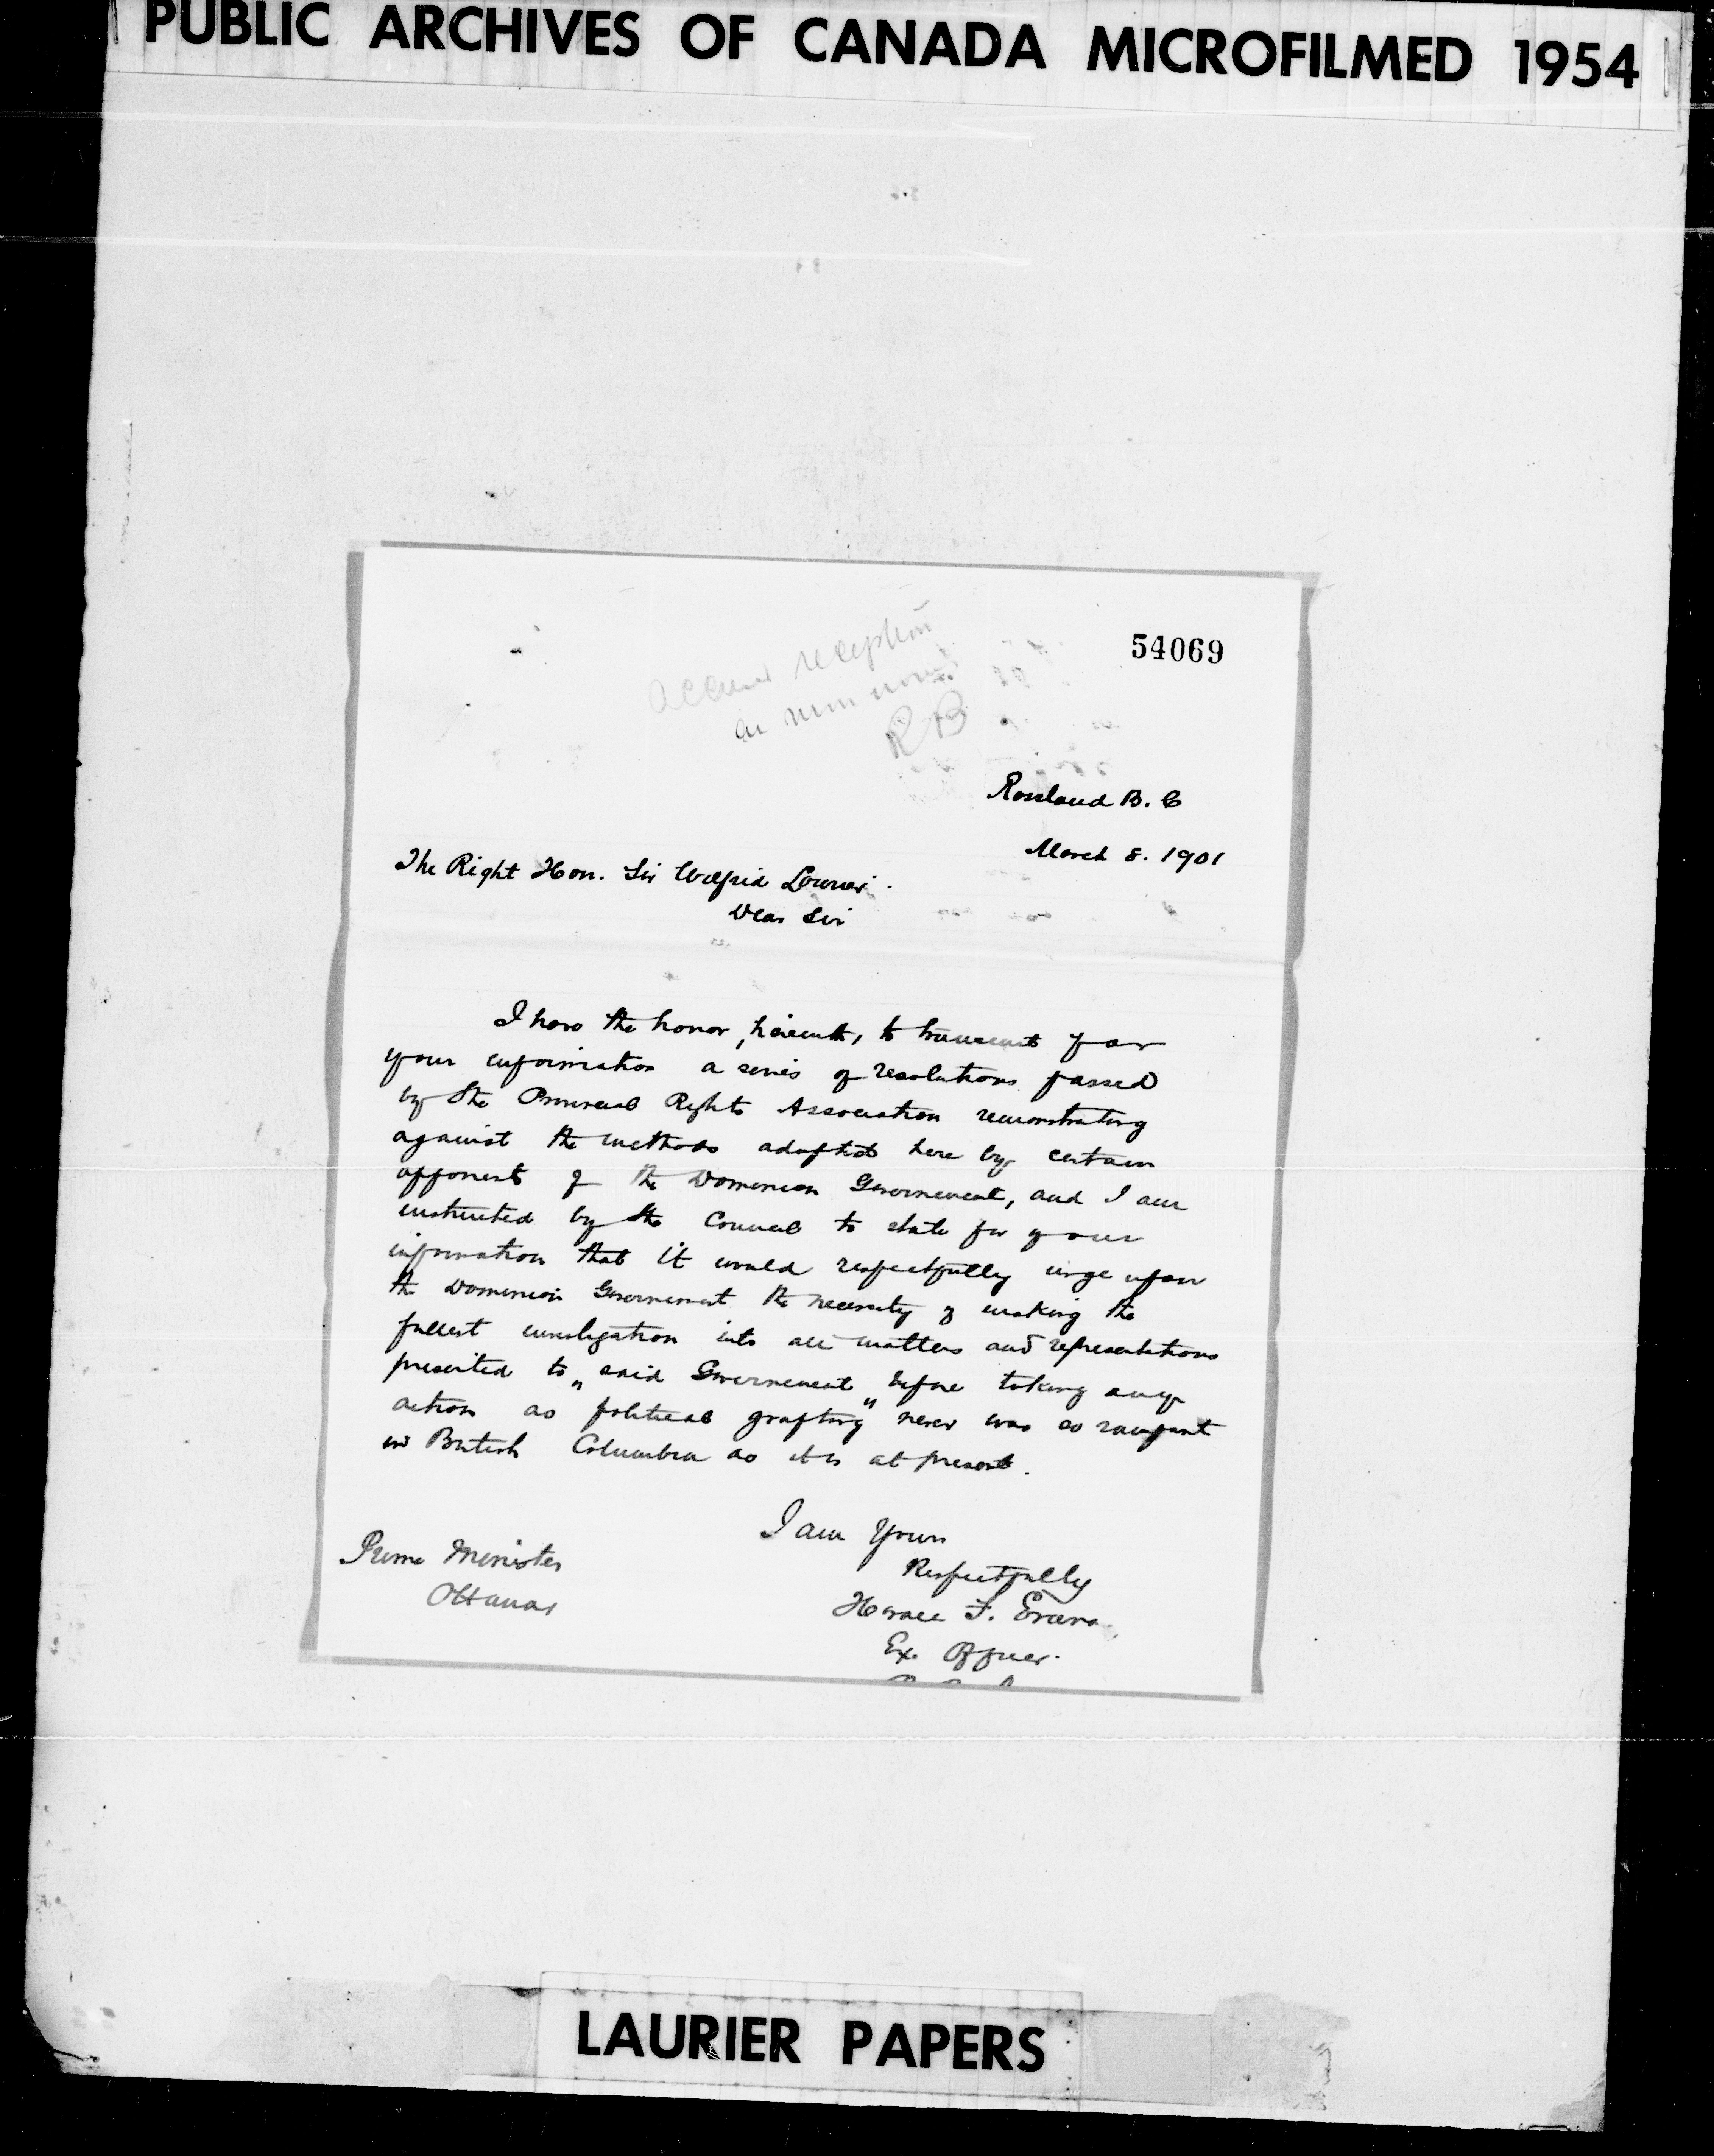 PUBLIC ARCHIVES OF CANADA MICROFILMED 1954
54069
reception
RB
Rossland B. C
March 8. 1901
The Right Hon. Sir Wilfrid Laurier.
Dear Sir
I have the honor, herewith, to transmit for
your information a series of resolutions passed
by the Provincial Rights Association remonstrating
against the methods adopted here by certain
opponents of the Dominion Government, and I am
instructed by the Council to state for your
information that it would respectfully urge upon
the Dominion Government the necessity of making the
fullest investigation into all matters and representations
presented to said Government before taking any
action as "political grafting" never was so rampant
in British Columbia as it is at present.
I am Yours
Respectfully
Horace F. Evans
Ex. Officer.
Prime Minister
Ottawa
LAURIER PAPERS